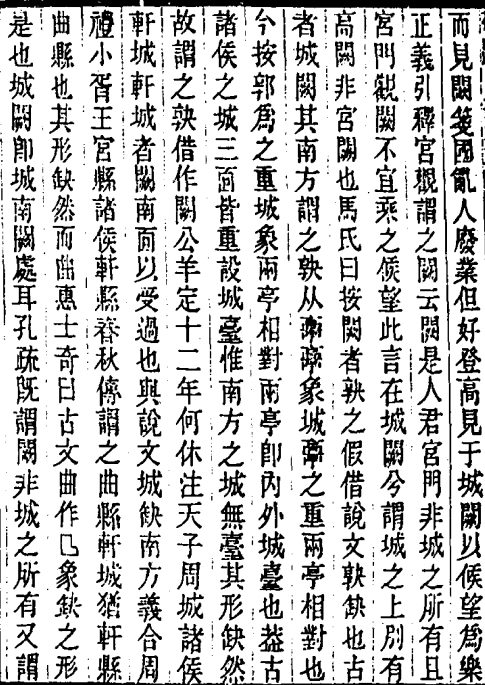 而見闕箋國亂人廢業但好登高見于城闕以候望爲樂
正義引釋宮觀謂之闕云闕是人君宮門非城之所有且
宮門觀闕不宜乘之候望此言在城闕兮謂城之上別有
高闕非宮闕也馬氏曰按闕者𡙇之假借說文𡙇缺也古
者城闕其南方謂之𡙇从𩫖象城𩫖之重兩亭相對也
今按郭爲之重城象兩亭相對兩亭卽內外城臺也葢古
諸侯之城三面皆重設城臺惟南方之城無臺其形缺然
故謂之𡙇借作闕公羊定十二年何休注天子周城諸侯
軒城軒城者闕南面以受過也與說文城缺南方義合周
禮小胥王宮縣諸侯軒縣春秋傳謂之曲縣軒城猶軒縣
曲縣也其形缺然而曲惠士奇曰古文曲作𠃊象缺之形
是也城闕卽城南闕處耳孔疏旣謂闕非城之所有又謂